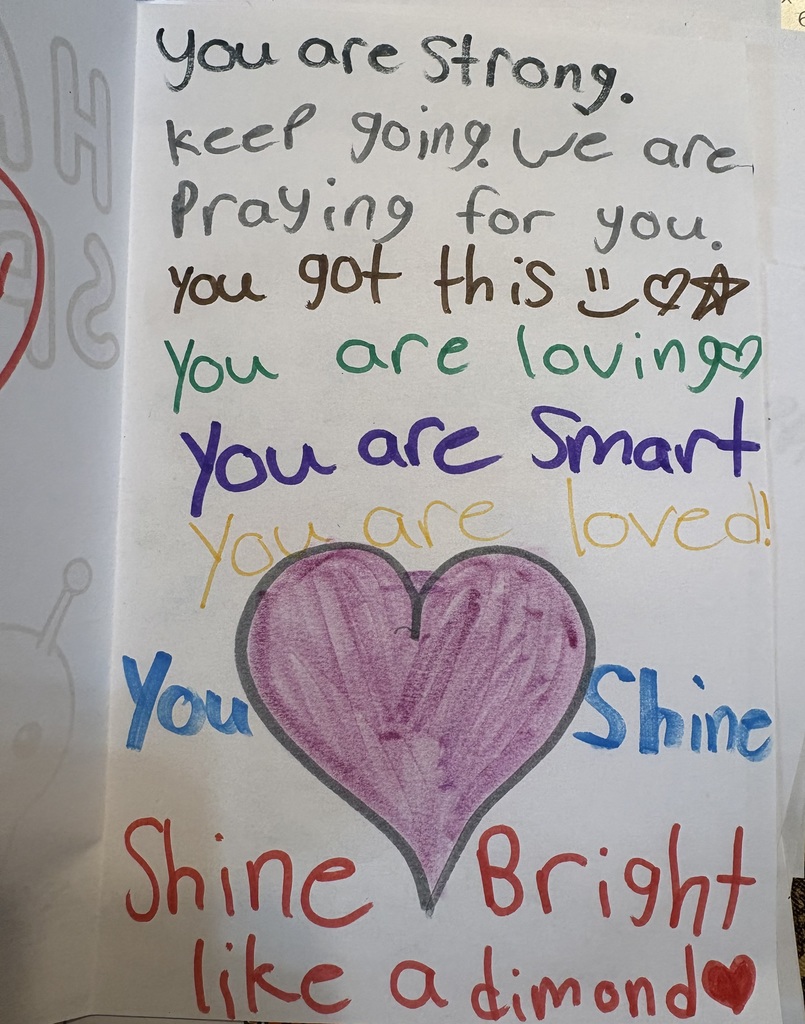 You are strong.
keep going. we are
Praying for you.
You got this
You are loving
You are Smart
You are loved!
You Shine
Shine Bright
like a dimond